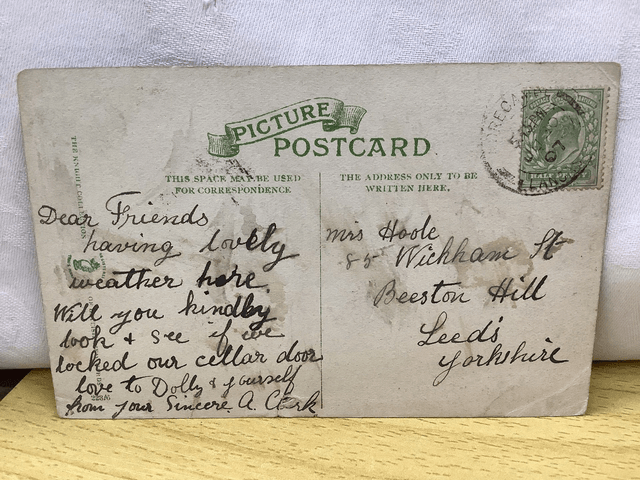 PICTURE
POSTCARD
THIS SPACE MAY BE USED
FOR CORRESPONDENCE
THE ADDRESS ONLY TO BE
WRITTEN HERE.
Dear Friends
having lovely
weather here.
Will you kindly
look & see if we
locked our cellar door
love to Dolly & yourself
from your Sincere A. Clark
Mrs Hoole
85 Wickham St
Beeston Hill
Leeds
Yorkshire
07
HALF PENNY
THE KNIGHT COLLECTION